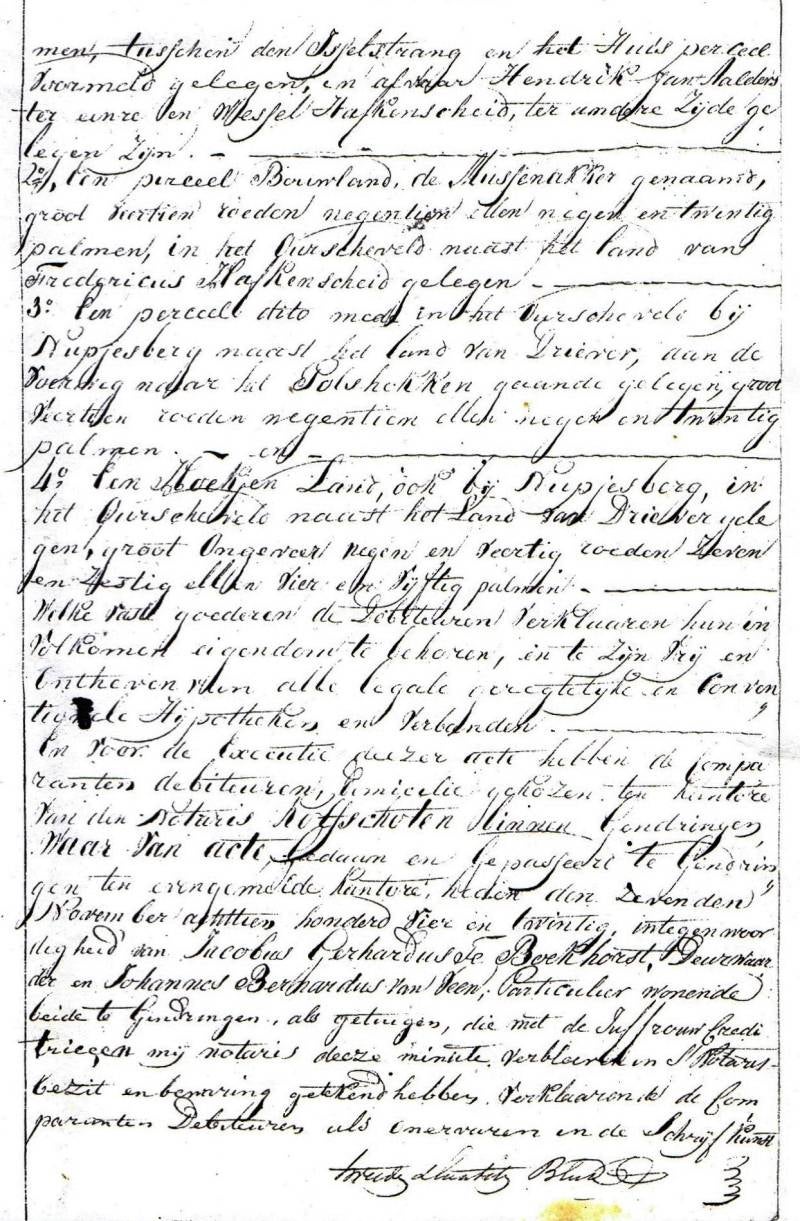 men, tusschen den Isselstrang en het Huis perceel
voormeld gelegen, en alwaar Hendrik Jan Aalders
ter eenre en Wessel Hafkenscheid, ter andere Zijde ge
legen Zijn. —
2º, Een perceel Bouwland, de Mussenakker genaamd,
groot veertien roeden negentien ellen negen en twintig
palmen, in het Ourscheveld naast het land van
Fredericus Hafkenscheid gelegen —
3º Een perceel dito mede in het Ourscheveld bij
Nupjesberg naast het land van Driever, aan de
Voerweg naar het Polshekken gaande gelegen, groot
Veertien roeden negentien ellen negen en twintig
palmen. — en —
4º Een Hoekjen Land, ook bij Nupjesberg, in
het Ourscheveld naast het Land van Driever gele
gen, groot Ongeveer negen en veertig roeden Zeven
en Zestig ellen vier en vijftig palmen —
Welke vaste goederen de Debiteuren verklaaren hun in
volkomen eigendom te behoren, en te Zijn vrij en
ontheven van alle legale geregtelyke en Conven
tionele Hypotheken en verbanden —
En voor de Executie deezer acte hebben de Compa
ranten debiteuren, Domicilie gekozen ten kantore
van den Notaris Rolfschoten binnen Gendringen,
Waar van acte, gedaan en Gepasseert te Gendrin
gen ten evengemelde kantore, heden den zevenden
November achttien honderd vier en twintig, in tegenwoor
digheid van Jacobus Gerhardus Te Boekhorst, Deurwaar
der en Johannes Bernhardus van Veen, Particulier wonende
beide te Gendringen, als getuigen, die met de Juffrouw Credi
trice en my notaris deeze minute verbleeven in S Notaris
bezit en bewaring getekend hebben. Verklaarende de Com
paranten Debiteuren als onervaren in de Schrijfkunst
tweede Blad